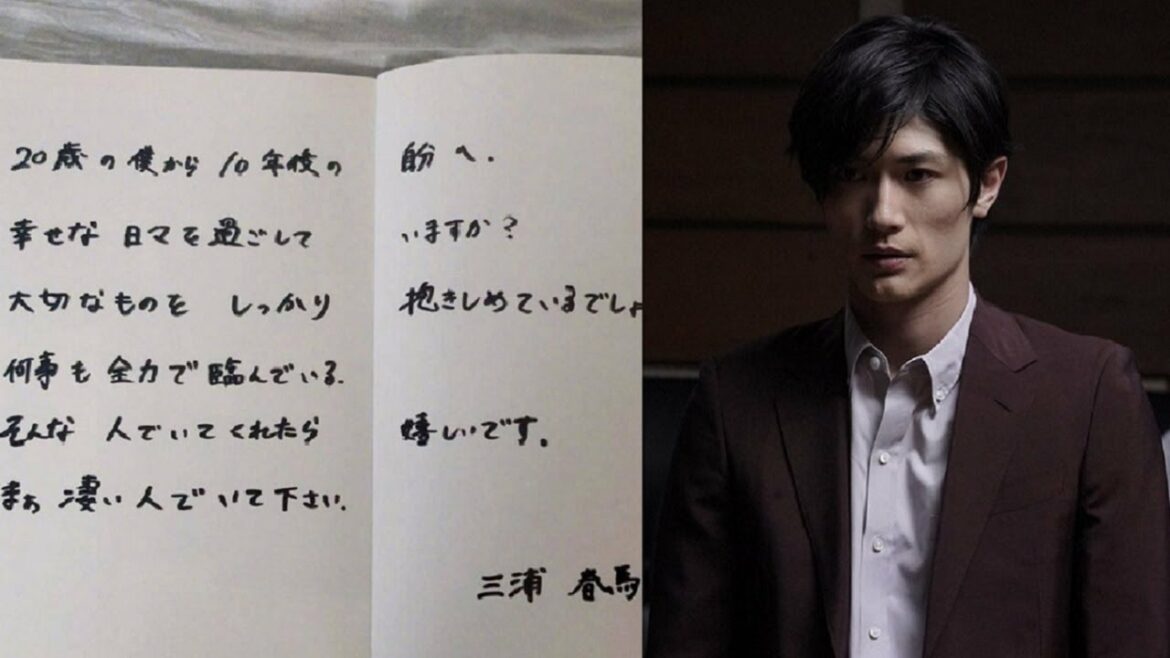 20歳の僕から10年後の自分へ.
幸せな日々を過ごしていますか?
大切なものをしっかり抱きしめているでしょ
何事も全力で臨んでいる.
そんな人でいてくれたら嬉しいです。
まぁ凄い人でいて下さい.
三浦春馬